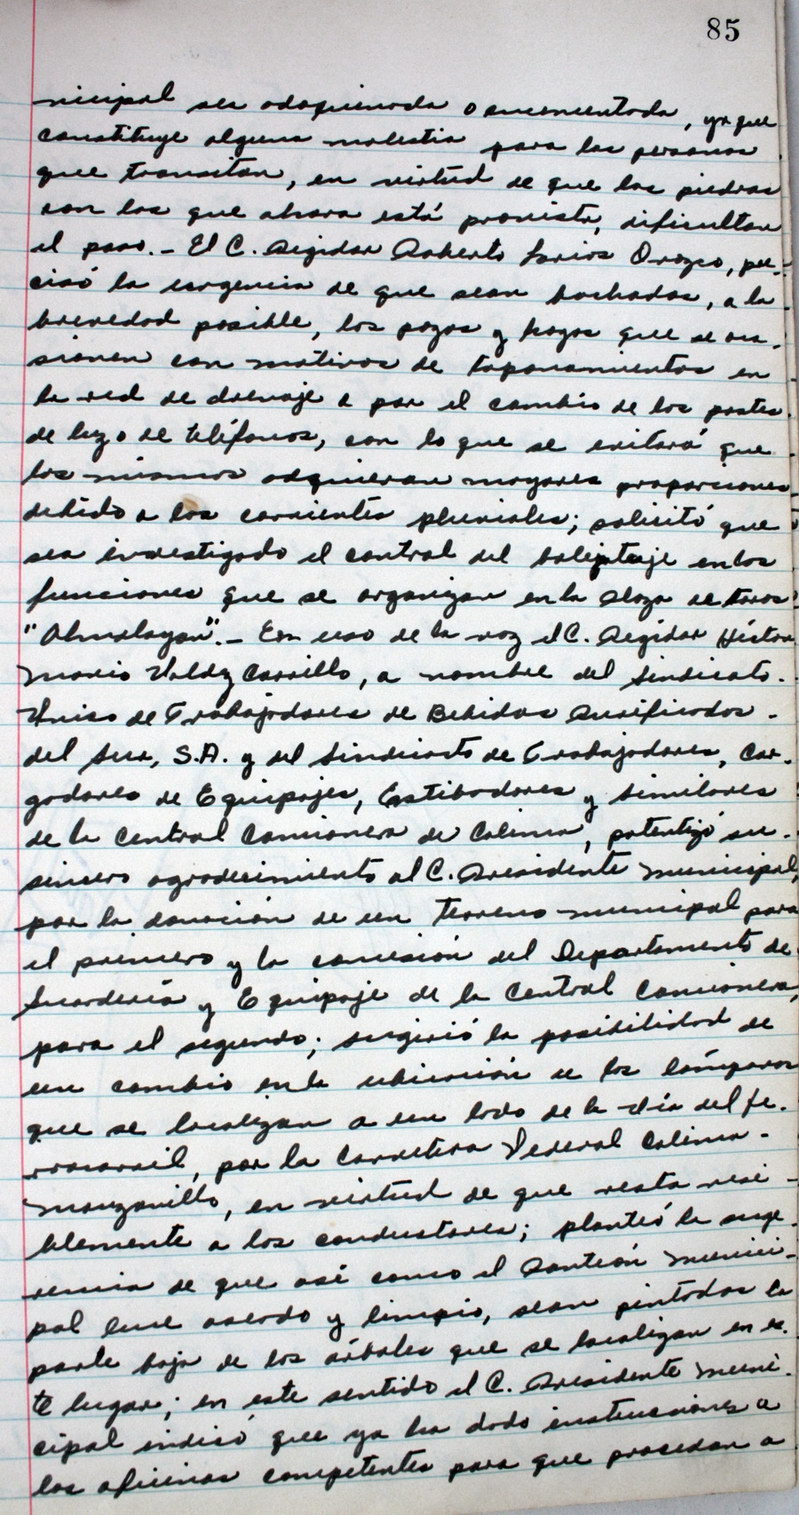 85
nicipal sea adoquinada o encementada, ya que
constituye alguna molestia para las personas
que transitan, en virtud de que las piedras
con las que ahora está provista, dificultan
el paso.- El C. Regidor Roberto Larios Orozco, pre-
cisó la urgencia de que sean bachados, a la
brevedad posible, los pozos y hoyos que se oca-
sionen con motivos de taponamientos en
la red de drenaje o por el cambio de los postes
de luz o de teléfonos, con lo que se evitará que
los mismos adquieran mayores proporciones
debido a las corrientes pluviales; solicitó que
sea investigado el control del boletaje en las
funciones que se organizan en la Plaza de toros
"Almoloyan".- En uso de la voz el C. Regidor Héctor
Mario Valdez Carrillo, a nombre del Sindicato
Unico de Trabajadores de Bebidas Purificadas
del Sur, S.A. y del Sindicato de Trabajadores, Car-
gadores de Equipajes, Estibadores y Similares
de la Central Camionera de Colima, patentizó su
sincero agradecimiento al C. Presidente Municipal,
por la donación de un terreno municipal para
el primero y la concesión del Departamento de
Guardería y Equipaje de la Central Camionera,
para el segundo; sugirió la posibilidad de
un cambio en la ubicación de las lámparas
que se localizan a un lado de la vía del fe-
rrocarril, por la Carretera Federal Colima-
Manzanillo, en virtud de que resta visi-
blemente a los conductores; planteó la suge-
rencia de que así como el Panteón Munici-
pal luce aseado y limpio, sean pintados la
parte baja de los árboles que se localizan en es-
te lugar; en este sentido el C. Presidente Muni-
cipal indicó que ya ha dado instrucciones a
las oficinas competentes para que procedan a